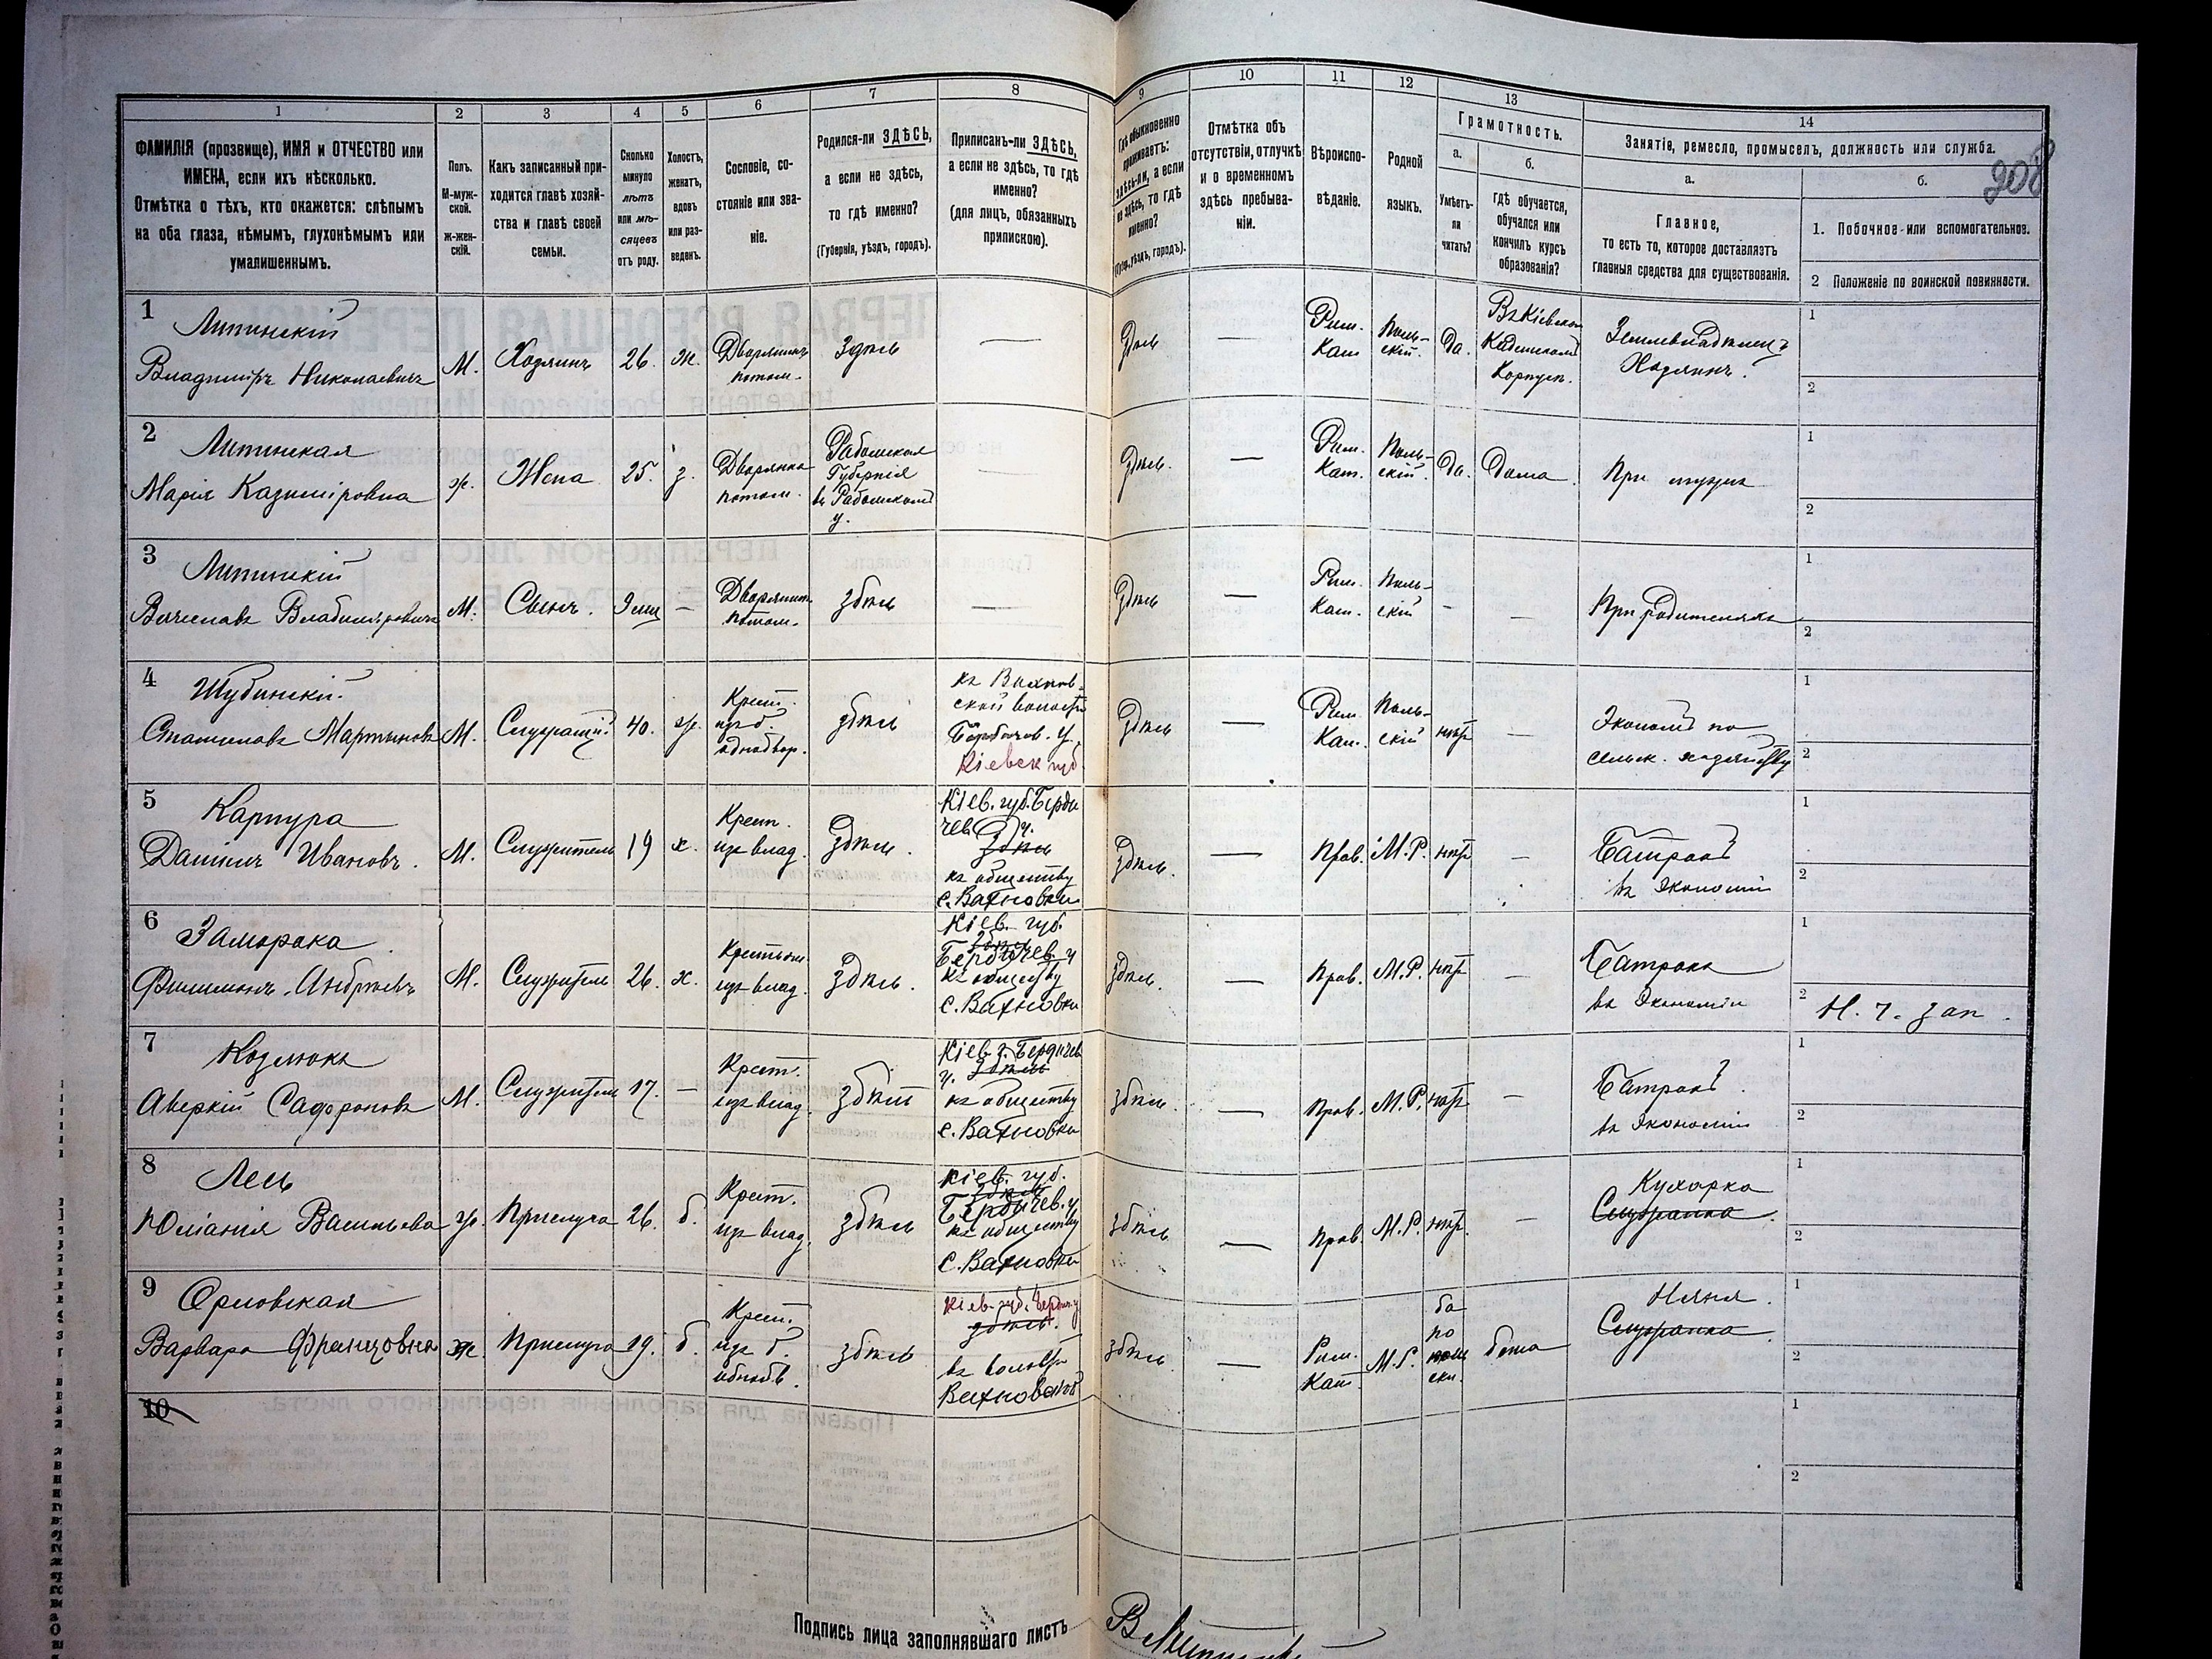 1
2
3
4
5
6
7
8
9
10
11
12
13
14
ФАМИЛІЯ (прозвище), ИМЯ и ОТЧЕСТВО или
ИМЕНА, если ихъ нѣсколько.
Отмѣтка о тѣхъ, кто окажется: слѣпымъ
на оба глаза, нѣмымъ, глухонѣмымъ или
умалишеннымъ.
Полъ.
М-муж-
ской.
Ж-жен-
скій.
Какъ записанный при-
ходится главѣ хозяй-
ства и главѣ своей
семьи.
Сколько
минуло
лѣтъ
или мѣ-
сяцевъ
отъ роду.
Холостъ,
женатъ,
вдовъ
или раз-
веденъ.
Сословіе, со-
стояніе или зва-
ніе.
Родился-ли ЗДѢСЬ,
а если не здѣсь,
то гдѣ именно?
(Губернія, уѣздъ, городъ).
Приписанъ-ли ЗДѢСЬ,
а если не здѣсь, то гдѣ
именно?
(для лицъ, обязанныхъ
припискою).
Гдѣ обыкновенно
проживаетъ:
здѣсь-ли, а если
не здѣсь, то гдѣ
именно?
(Губ., уѣздъ, городъ).
Отмѣтка объ
отсутствіи, отлучкѣ
и о временномъ
здѣсь пребыва-
ніи.
Вѣроиспо-
вѣданіе.
Родной
языкъ.
Грамотность.
а.
б.
Умѣетъ-
ли
читать?
Гдѣ обучается,
обучался или
кончилъ курсъ
образованія?
Занятіе, ремесло, промыселъ, должность или служба.
208
а.
б.
Главное,
то есть то, которое доставляетъ
главныя средства для существованія.
1. Побочное или вспомогательное.
2 Положеніе по воинской повинности.
1
Липинскій
Владиміръ Николаевичъ
М.
Хозяинъ
26.
ж.
Дворянинъ
потом.
Здѣсь
—
Здѣсь
—
Рим.
Кат
Поль-
скій.
Да.
Въ Кіевском
Кадетскомъ
Корпусѣ.
Землевладѣлецъ
Хозяинъ.
1
2
2
Липинская
Марія Казиміровна
ж.
Жена
25.
з.
Дворянка
потом.
Радомская
Губернія
въ Радомскомъ
у.
—
Здѣсь.
—
Рим.
Кат.
Поль-
скій.
Да.
Дома
При мужѣ
1
2
3
Липинскій
Вячеславъ Владиміровичъ
М.
Сынъ.
9 мѣс
—
Дворянинъ
потом.
здѣсь
—
Здѣсь
—
Рим.
Кат.
Поль-
скій
-
—
При родителяхъ
1
2
4
Шубинскій
Станиславъ Мартыновъ
М.
Служащій
40.
ж.
Крест.
изъ б.
однодвор.
здѣсь
къ Вахнов-
ской волости
Бердичев. у.
Кіевск губ.
Здѣсь
—
Рим.
Кат.
Поль-
скій
нѣтъ
—
Экономъ по
сельск. хозяйству
1
2
5
Карпура
Даніилъ Ивановъ.
М.
Служитель
19
х.
Крест.
изъ влад.
Здѣсь.
Кіев. губ. Берди
чев у.
здѣсь
къ обществу
с. Вахновки
здѣсь.
—
Прав.
М.Р.
нѣтъ
—
Батракъ
въ Экономіи
1
2
6
Заморока
Филимонъ Андреевъ
М.
Служитель
26.
х.
Крестьян.
изъ влад.
Здѣсь.
Кіев. губ.
здѣсь
Бердичев. у
къ обществу
с. Вахновки
здѣсь.
—
Прав.
М.Р.
нѣтъ
—
Батракъ
въ Экономіи
1
2
Н. ч. зап.
7
Козлюкъ
Аверкій Сафроновъ
М.
Служитель
17.
—
Крест.
изъ влад.
здѣсь
Кіев. г. Бердичев
у. здѣсь
къ обществу
с. Вахновки
здѣсь.
—
Прав.
М.Р.
нѣтъ
—
Батракъ
въ Экономіи
1
2
8
Лесь
Юліанія Васильева
ж.
Прислуга
26.
д.
Крест.
изъ влад.
здѣсь
Кіев. губ.
здѣсь
Бердичев. у
къ обществу
с. Вахновки
здѣсь
—
Прав.
М.Р.
нѣтъ.
—
Кухарка
Служанка.
1
2
9
Орловская
Варвара Францовна
ж.
Прислуга
19.
д.
Крест.
изъ б.
однодв.
здѣсь
Кіев. губ. Бердич. у
здѣсь.
въ волости
Вахновской
здѣсь.
—
Рим.
Кат.
М.Р.
да
по
поль
ски.
дома
Няня.
Служанка.
1
2
10
1
2
Подпись лица заполнявшаго листъ